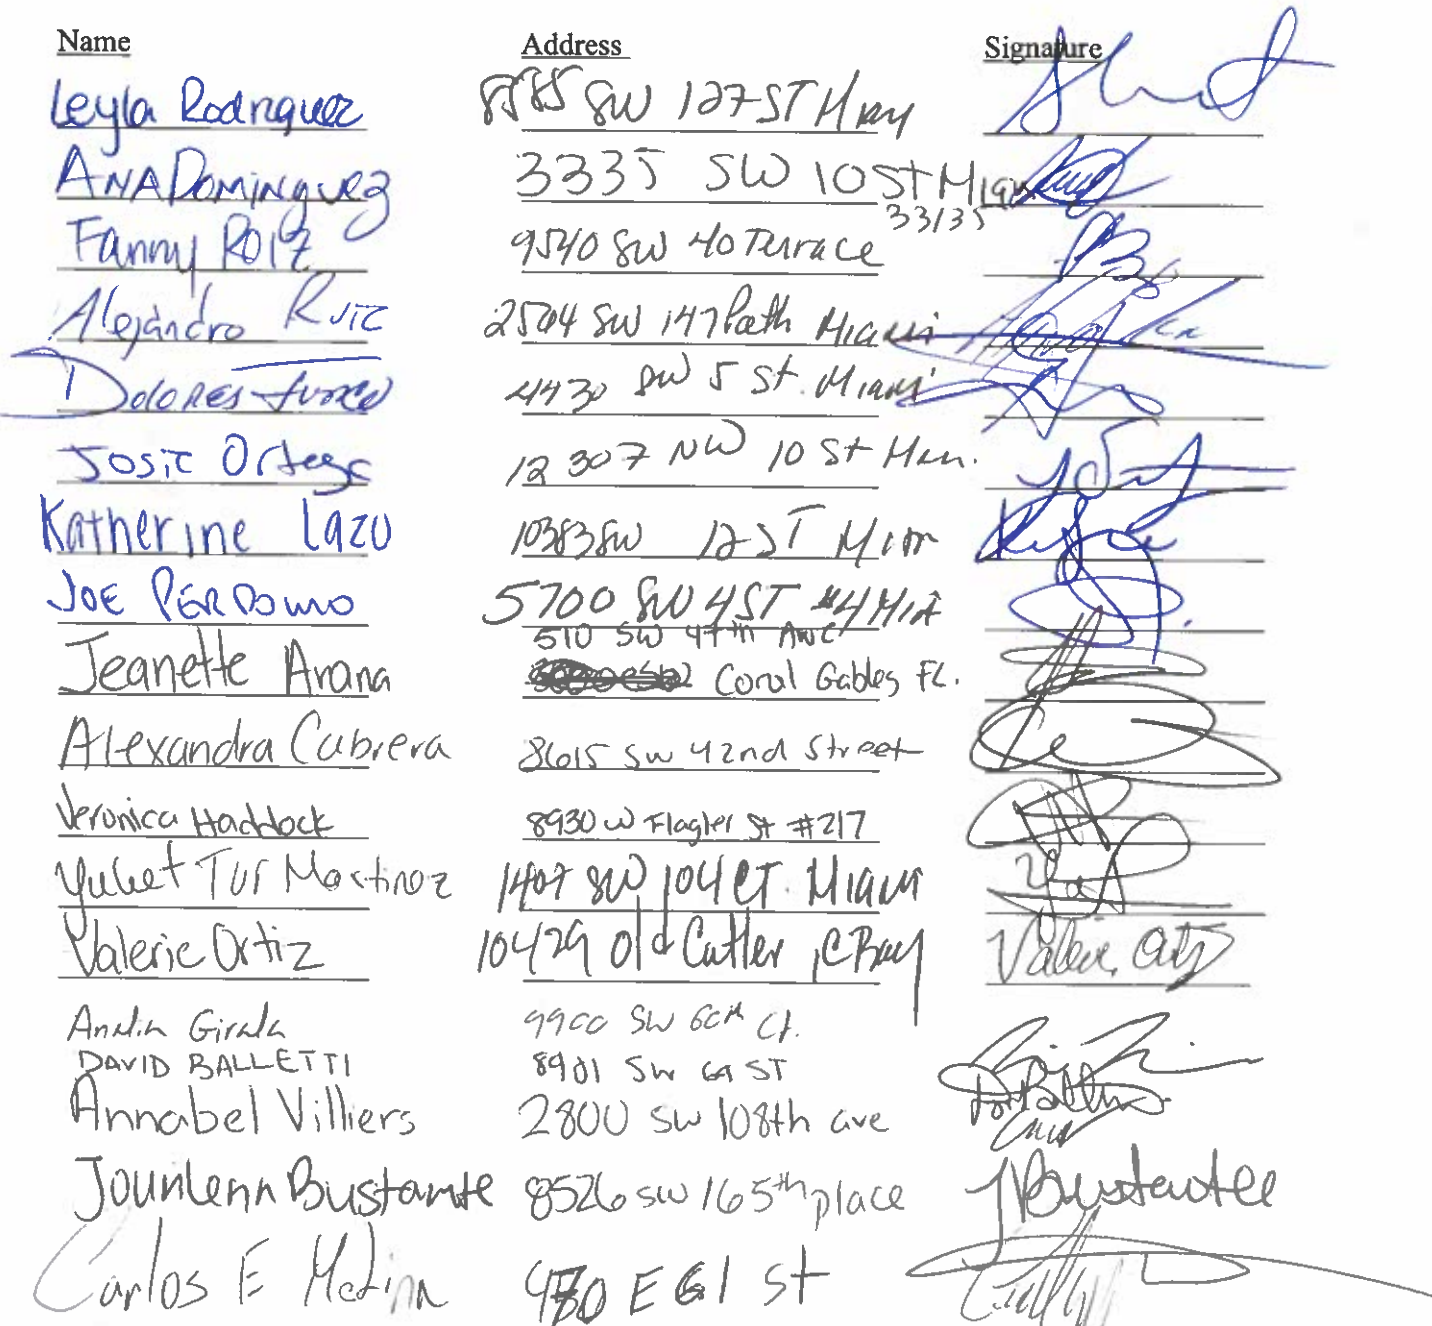 Name Address Signature
Leyla Rodriguez 8585 SW 127 ST
Ana Dominguez 3335 SW 10 St Miami
33135
Fanny Roiz 9540 SW 40 Terrace
Alejandro Ruiz 2504 SW 147 Path Miami
Dolores 4430 SW 5 St. Miami
Josie Ortega 12307 NW 10 St
Katherine Lazo 10383 SW 12 ST
JOE PERDOMO 5700 SW 4 ST #4
510 SW 47th Ave
Jeanette Arana Coral Gables FL.
Alexandra Cabrera 8615 SW 42nd Street
Veronica Haddock 8930 W Flagler St #217
Yuliet Tur Martinez 1407 SW 104 CT. Miami
Valerie Ortiz 10429 Old Cutler, C Bay Valerie Ortiz
Analia Girala 9900 SW 60th Ct.
DAVID BALLETTI 8901 SW 69 ST
Annabel Villiers 2800 SW 108th ave
Jounlenn Bustamte 8526 SW 165th place
Carlos E Medina E 61 St